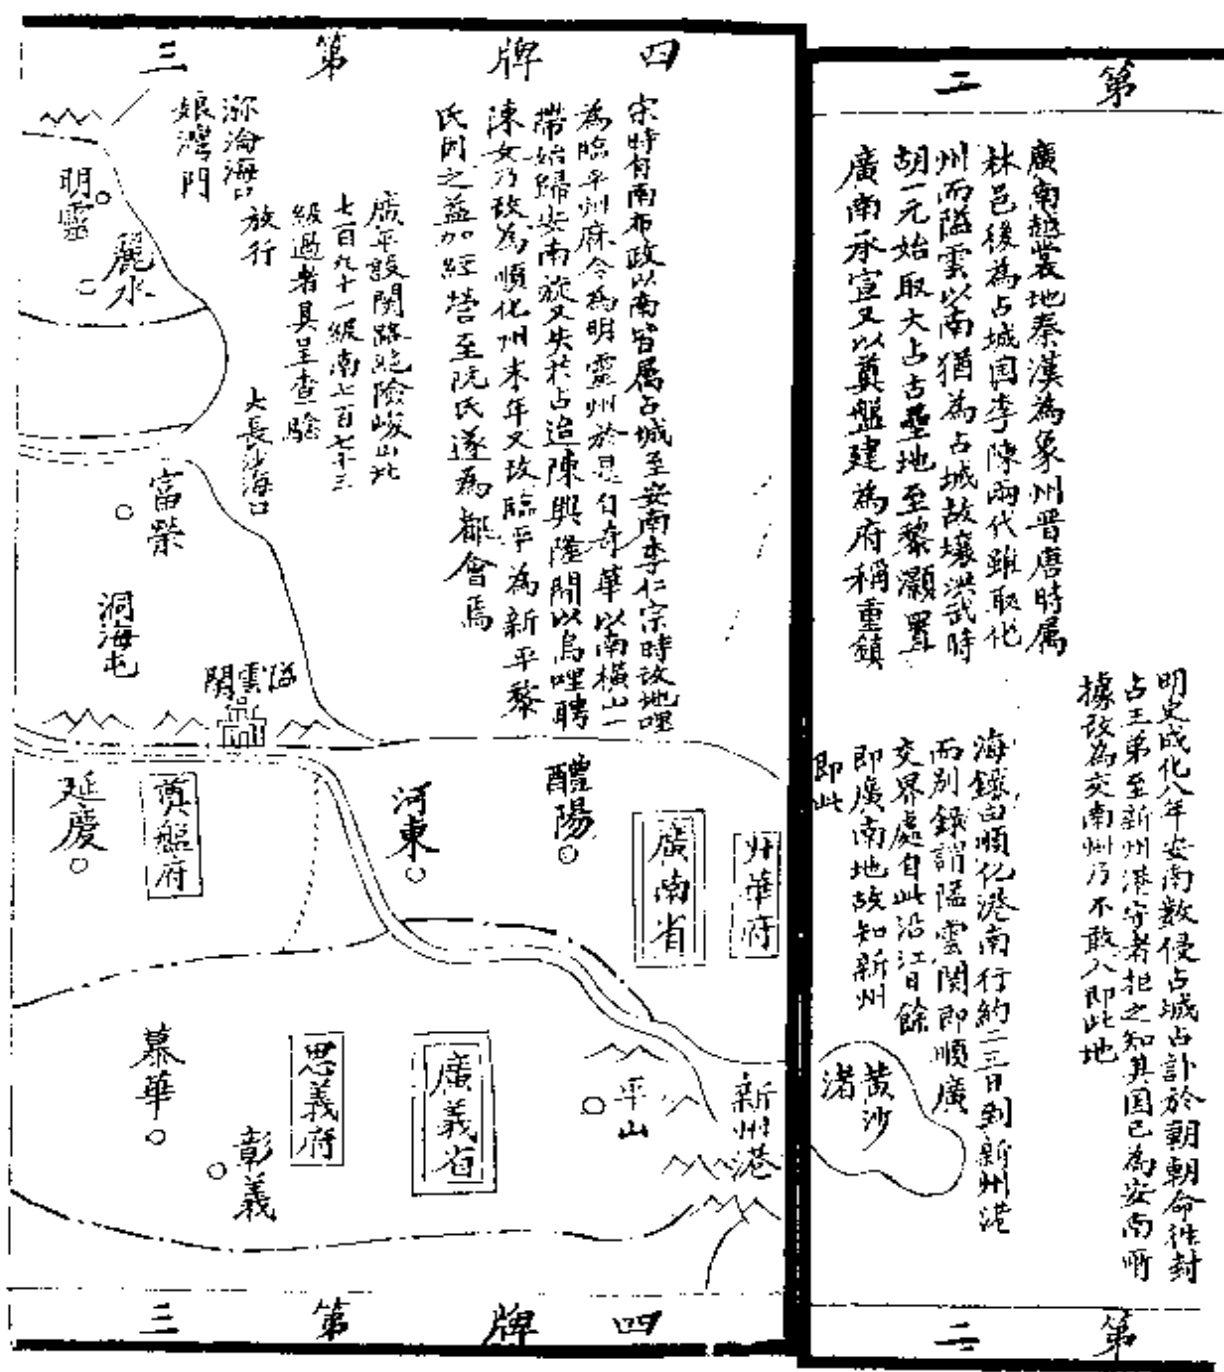 第二
廣南越裳地秦漢為象州晋唐時属
林邑後為占城国李陳兩代雖取化
州而隘雲以南猶為占城故壤洪武時
胡一元始取大占古壘地至黎灝置
廣南承宣又以奠盤建為府稱重鎮
明史成化八年安南数侵占城占訃於朝朝命徃封
占王弟至新州港守者拒之知其国已為安南所
據改為交南州乃不敢入即此地
海録由順化港南行約二三日到新州港
而别録謂隘雲関即順廣
交界處自此沿江日餘
即廣南地故知新州
即此
黄沙
渚
第二
四牌第三
宗時有南布政以南皆属占城至安南李仁宗時改地哩
為臨平州麻令為明霊州於是自奇華以南横山一
帶始歸安南旋又失於占迨陳興隆間以烏哩聘
陳女乃改為順化州末年又改臨平為新平黎
氏因之益加經营至阮氏遂為都會焉
廣平設関路絶險峻山北
七百九十一級南七百七十三
級過者具呈查驗
放行
弥淪海口
娘灣門
明霊
麗水
大長沙海口
富榮
洞海屯
隘雲関
延慶
奠盤府
河東
醴陽
廣南省
升華府
慕華
彰義
思義府
廣義省
平山
新州港
四牌第三